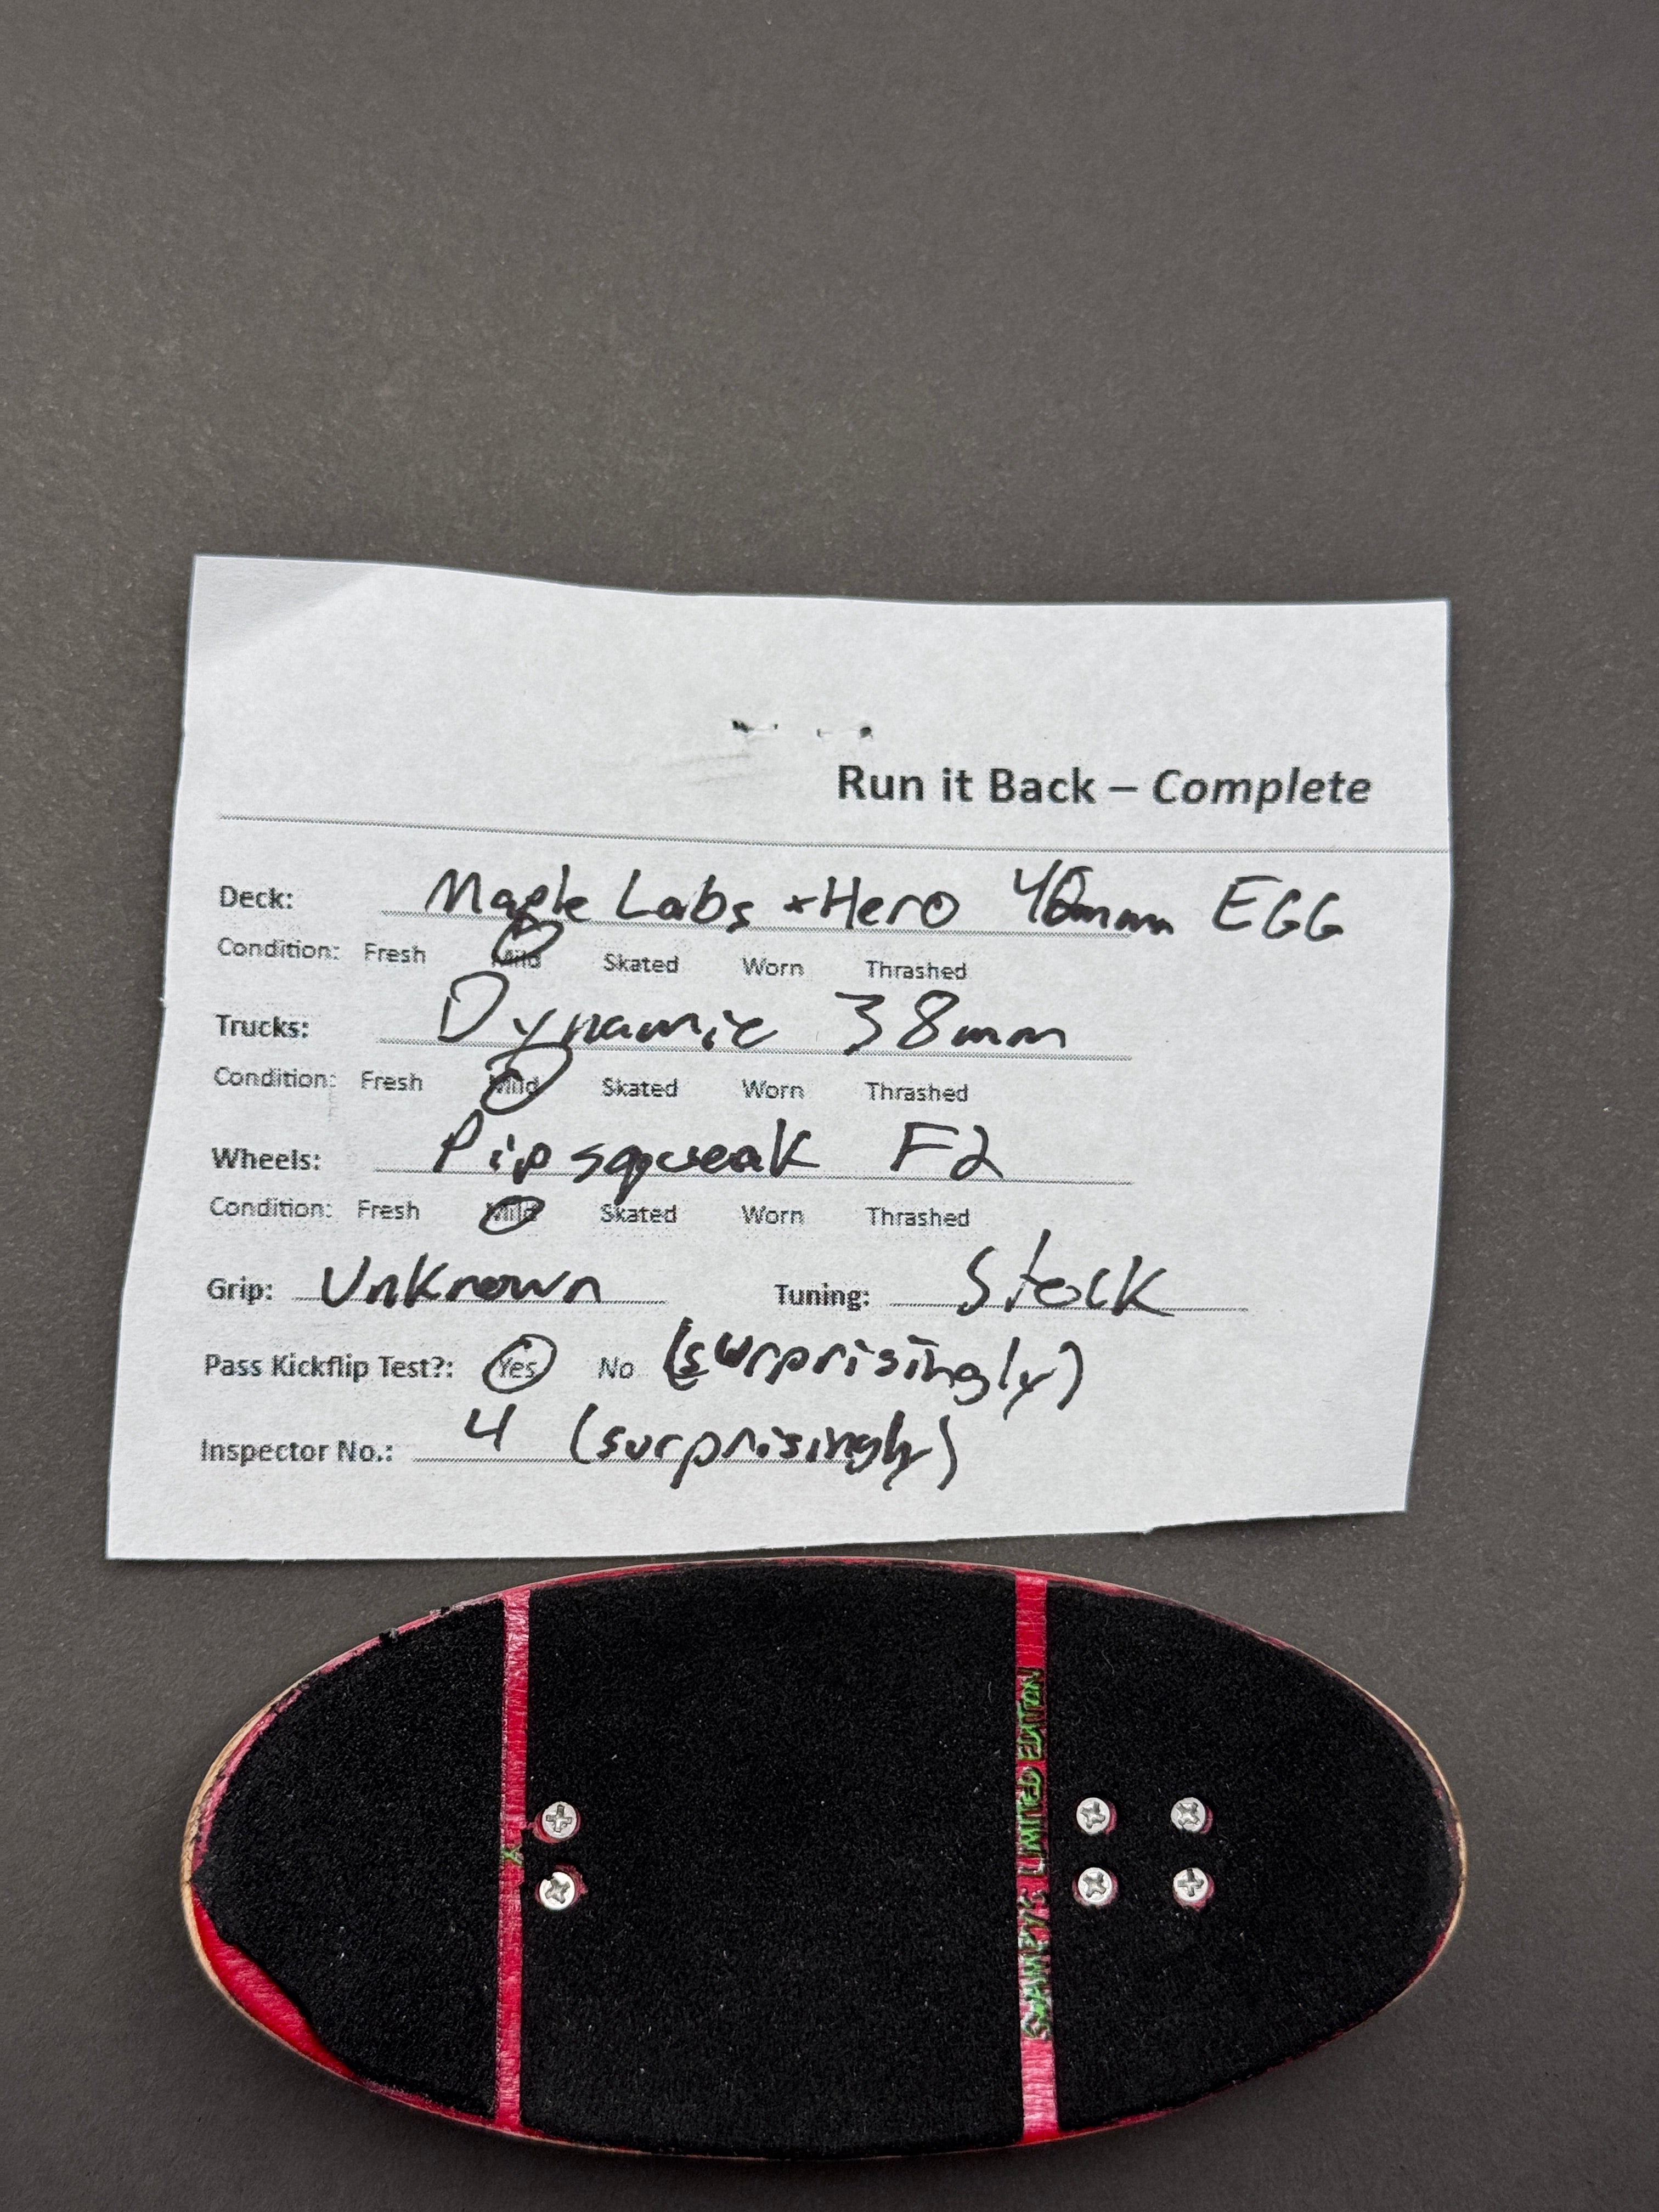 Run it Back – Complete
Deck: Maple Labs x Hero mm EGG
Condition: Fresh Mild Skated Worn Thrashed
Trucks: Dynamic 38mm
Condition: Fresh Mild Skated Worn Thrashed
Wheels: Pipsqueak F2
Condition: Fresh Mild Skated Worn Thrashed
Grip: Unknown Tuning: Stock
Pass Kickflip Test?: Yes No (surprisingly)
Inspector No.: 4 (surprisingly)
LIMITED EDITION